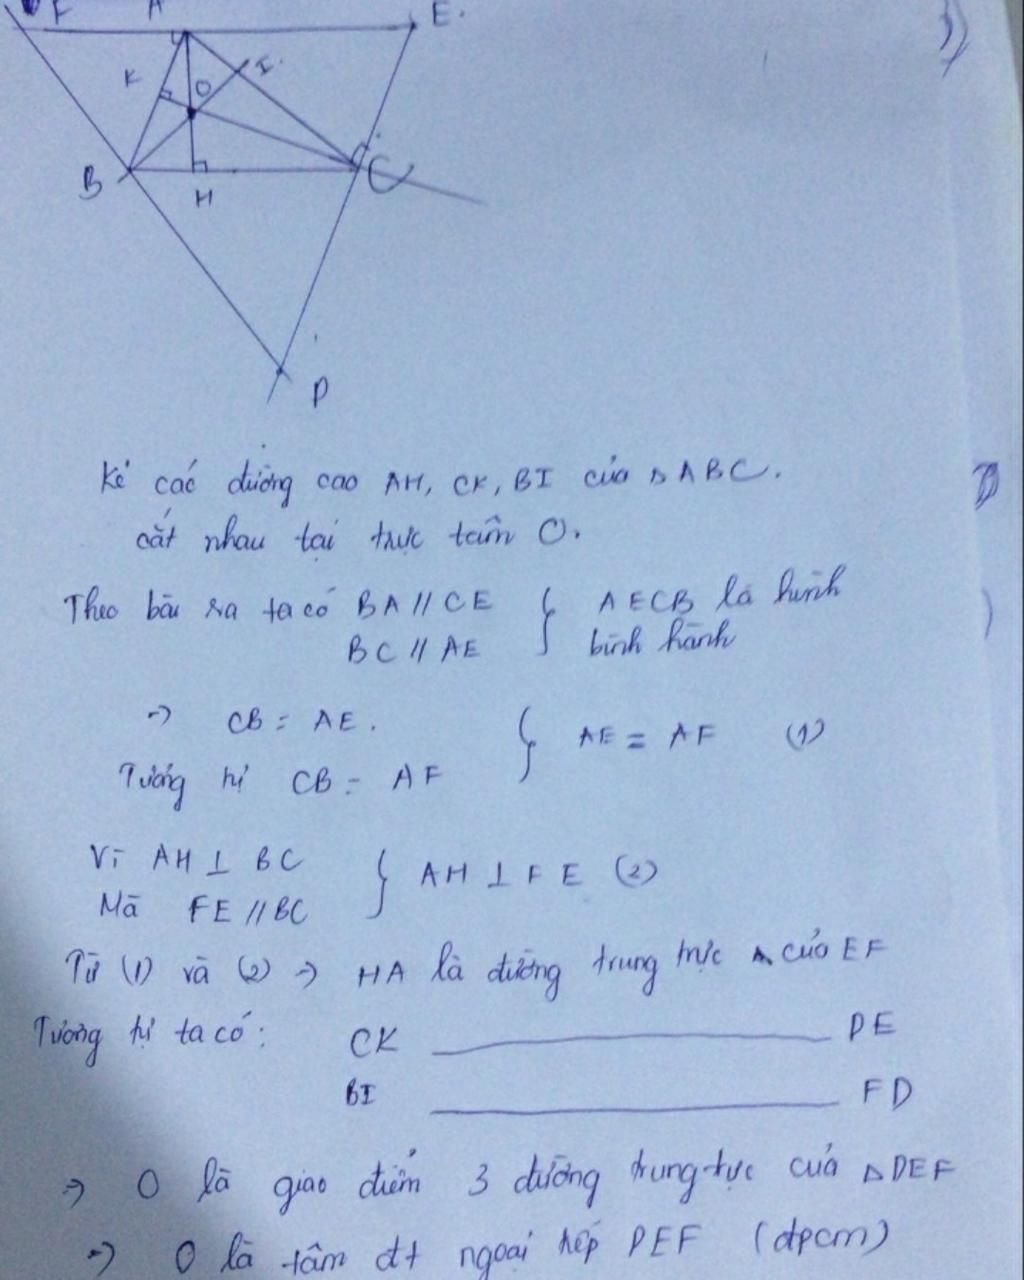 F A E.
K O I.
B H C
D
Kẻ các đường cao AH, CK, BI của △ABC.
cắt nhau tại trực tâm O.
Theo bài ra ta có BA // CE } AECB là hình
BC // AE bình hành
→ CB = AE. } AE = AF (1)
Tương tự CB = AF
Vì AH ⊥ BC } AH ⊥ FE (2)
Mà FE // BC
Từ (1) và (2) → HA là đường trung trực của EF
Tương tự ta có: CK ———— DE
BI ———— FD
⇒ O là giao điểm 3 đường trung trực của △DEF
⇒ O là tâm đt ngoại tiếp DEF (đpcm)